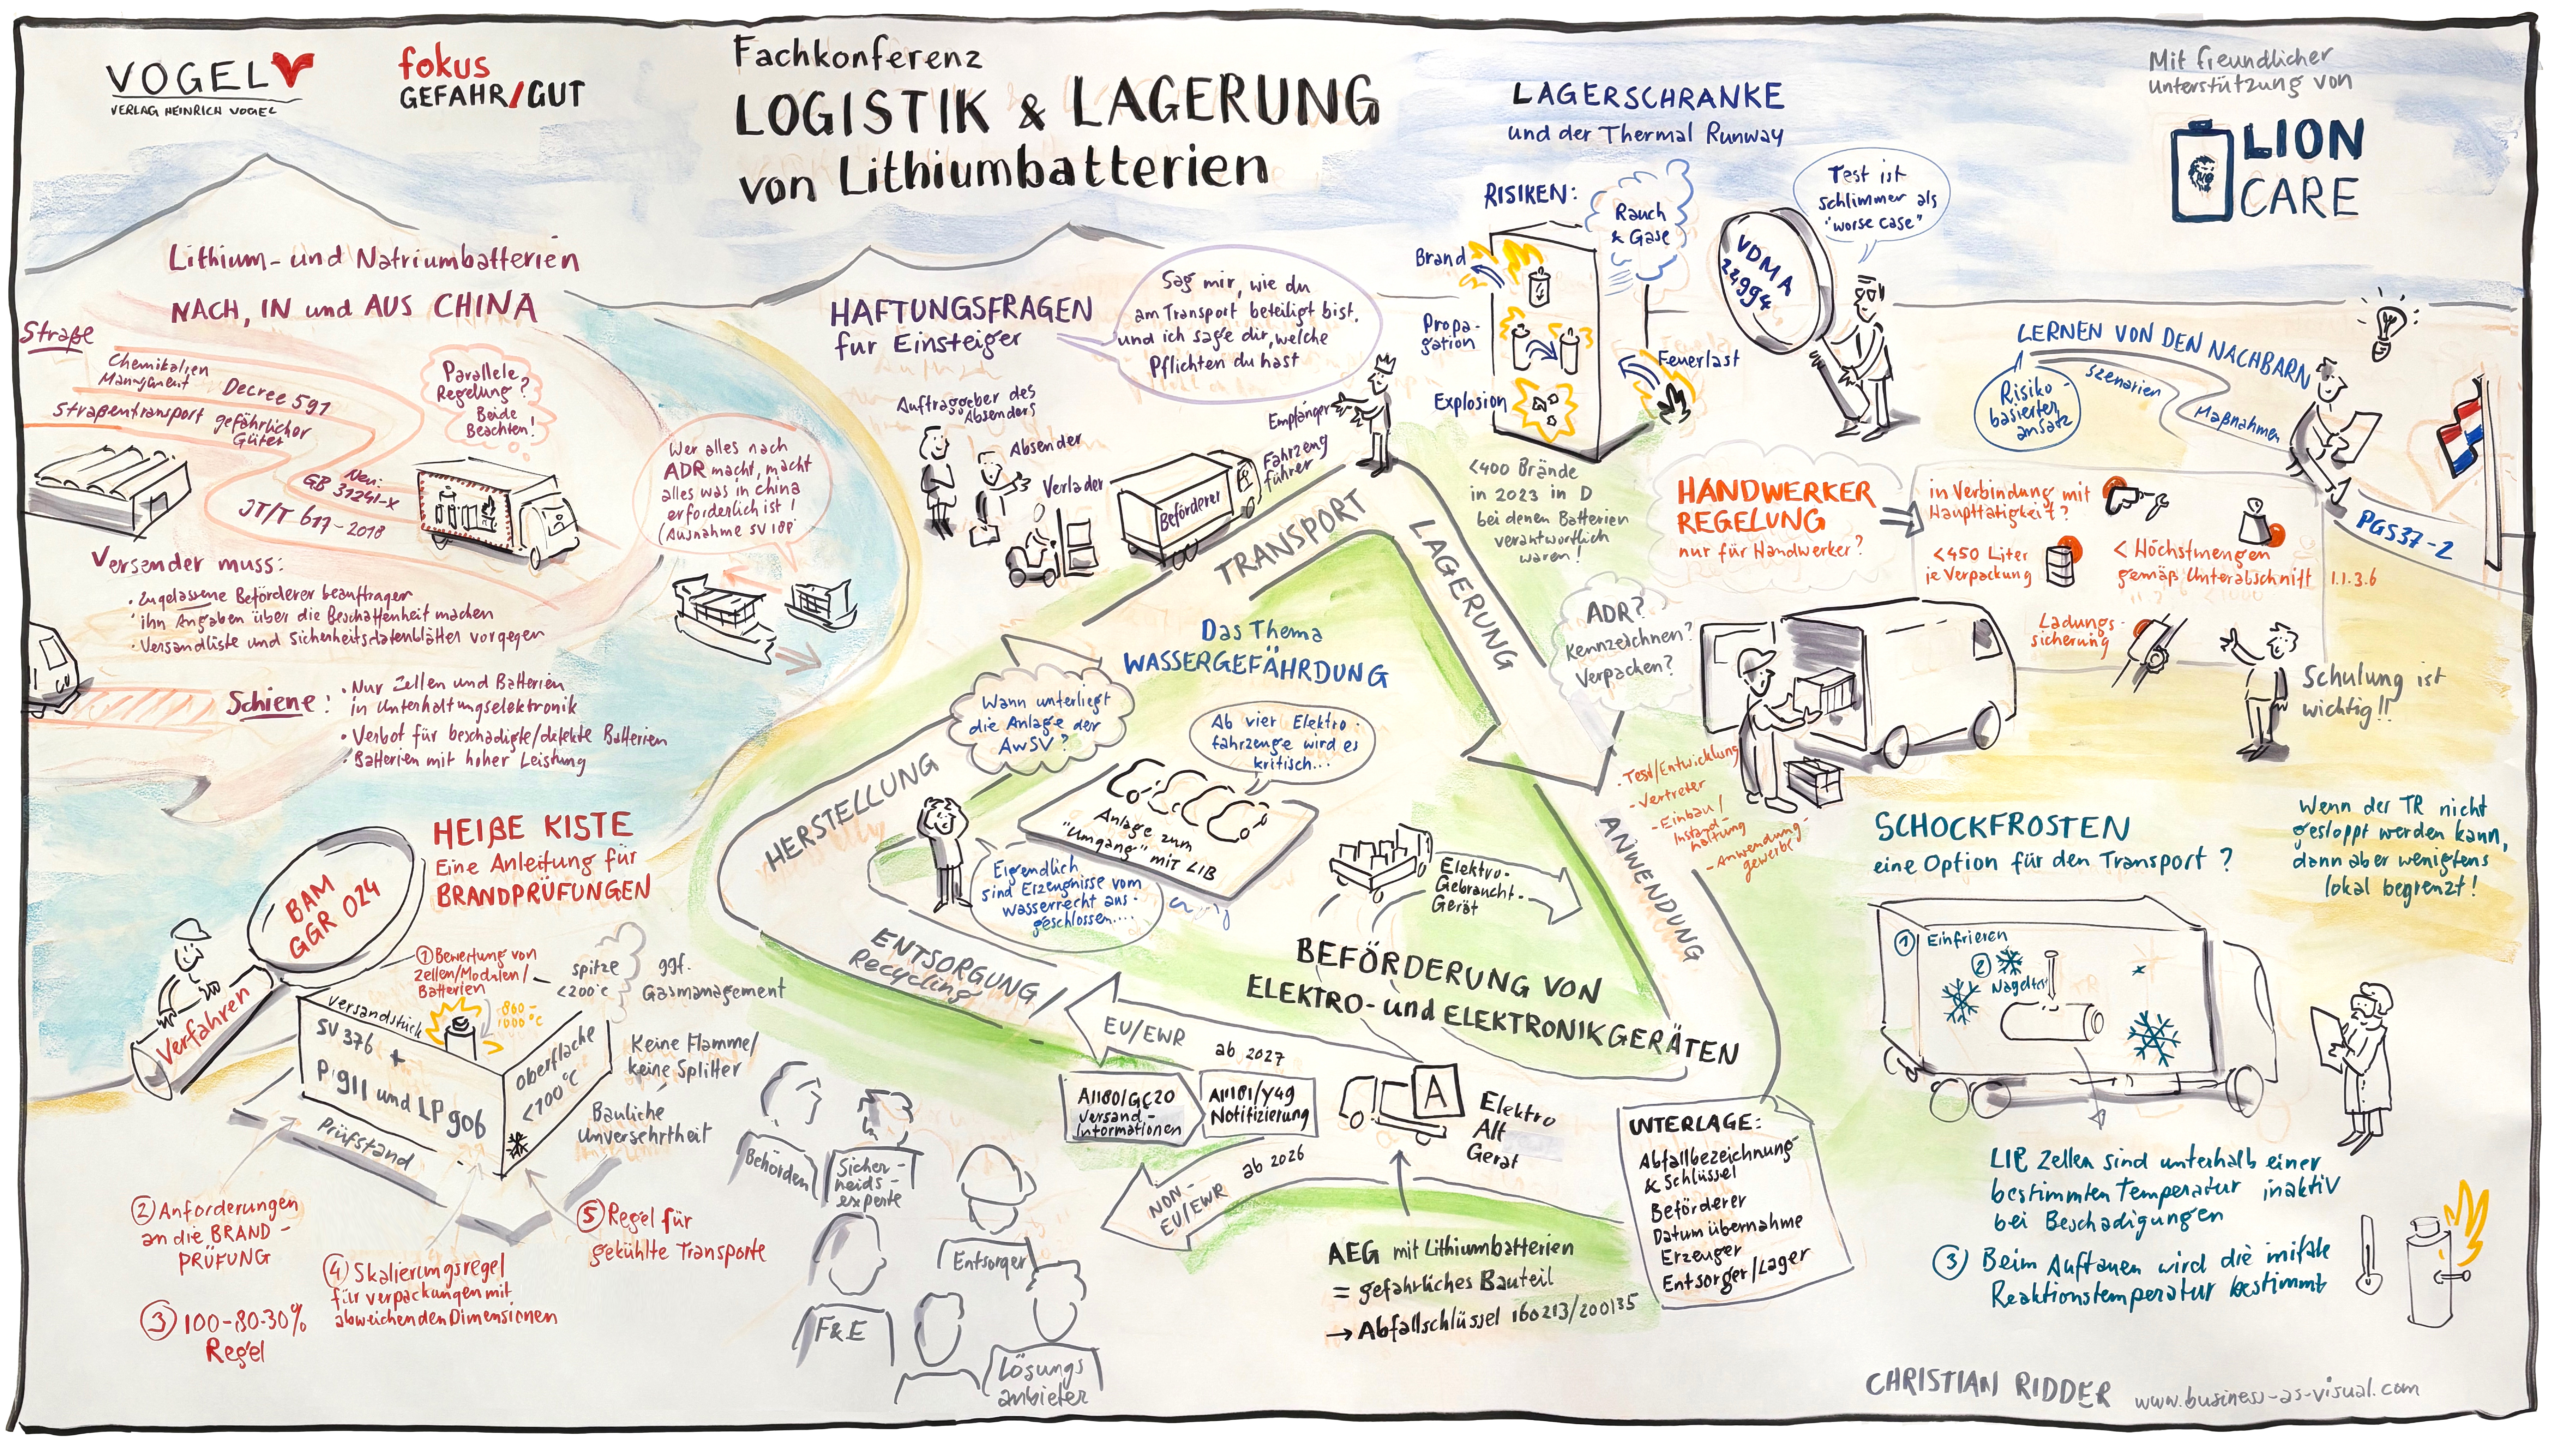 VOGEL
VERLAG HEINRICH VOGEL
fokus
GEFAHR/GUT
Fachkonferenz
LOGISTIK & LAGERUNG
von Lithiumbatterien
Mit freundlicher
Unterstützung von
LION
CARE
Lithium- und Natriumbatterien
NACH, IN und AUS CHINA
Straße
Chemikalien
Management
Decree 591
Straßentransport gefährlicher
Güter
Neu:
GB 31241-X
JT/T 617-2018
Parallele
Regelung?
Beide
Beachten!
Wer alles nach
ADR macht, macht
alles was in China
erforderlich ist!
(Ausnahme SV 188)
Versender muss:
• Zugelassene Beförderer beauftragen
• ihn Angaben über die Beschaffenheit machen
• Versandliste und Sicherheitsdatenblätter vorgegen
Schiene:
• Nur Zellen und Batterien
in Unterhaltungselektronik
• Verbot für beschädigte/defekte Batterien
• Batterien mit hoher Leistung
HAFTUNGSFRAGEN
für Einsteiger
Sag mir, wie du
am Transport beteiligt bist,
und ich sage dir, welche
Pflichten du hast
Auftraggeber des
Absenders
Absender
Verlader
Beförderer
Fahrzeug
führer
Empfänger
LAGERSCHRANKE
und der Thermal Runway
RISIKEN:
Rauch
& Gase
Brand
Propa-
gation
Explosion
Feuerlast
VDMA
24994
Test ist
schlimmer als
"worse case"
<400 Brände
in 2023 in D
bei denen Batterien
verantwortlich
waren!
LERNEN VON DEN NACHBARN
Risiko-
basierter
ansatz
Szenarien
Maßnahmen
PGS37-2
HANDWERKER
REGELUNG
nur für Handwerker?
in Verbindung mit
Haupttätigkeit?
<450 Liter
je Verpackung
< Höchstmengen
gemäß Unterabschnitt 1.1.3.6
Ladungs-
sicherung
Schulung ist
wichtig!!
ADR?
Kennzeichnen?
Verpacken?
- Test/Entwicklung
- Vertreter
- Einbau/
Instand-
haltung
- Anwendung-
gewerbe
TRANSPORT
LAGERUNG
ANWENDUNG
HERSTELLUNG
ENTSORGUNG
Recycling
Das Thema
WASSERGEFÄHRDUNG
Wann unterliegt
die Anlage der
AwSV?
Ab vier Elektro-
fahrzeuge wird es
kritisch...
Anlage zum
"Umgang" mit LIB
Eigendlich
sind Erzeugnisse vom
Wasserrecht aus-
geschlossen....
Elektro-
Gebraucht-
Gerät
BEFÖRDERUNG VON
ELEKTRO- und ELEKTRONIKGERÄTEN
EU/EWR
ab 2027
A1180/GC20
Versand-
Informationen
A1181/Y49
Notifizierung
ab 2026
NON-
EU/EWR
A
Elektro
Alt
Gerät
AEG mit Lithiumbatterien
= gefährliches Bauteil
→ Abfallschlüssel 160213/200135
UNTERLAGE:
Abfallbezeichnung
& Schlüssel
Beförderer
Datum übernahme
Erzeuger
Entsorger/Lager
HEIßE KISTE
Eine Anleitung für
BRANDPRÜFUNGEN
BAM
GGR 024
Verfahren
① Bewertung von
Zellen/Modulen/
Batterien
spitze
<200°C
ggf.
Gasmanagement
800-
1000°C
Versandstück
SV 376 +
P 911 und LP 906
Oberfläche
<100°C
Keine Flamme/
keine Splitter
Bauliche
Unversehrtheit
Prüfstand
② Anforderungen
an die BRAND-
PRÜFUNG
③ 100-80-30%
Regel
④ Skalierungsregel
für Verpackungen mit
abweichenden Dimensionen
⑤ Regel für
gekühlte Transporte
Behörden
Sicher-
heids-
experte
Entsorger
F&E
Lösungs
anbieter
SCHOCKFROSTEN
eine Option für den Transport?
Wenn der TR nicht
gestoppt werden kann,
dann aber wenigstens
lokal begrenzt!
① Einfrieren
②
Nageltest
LIB Zellen sind unterhalb einer
bestimmten Temperatur inaktiv
bei Beschädigungen
③ Beim Auftauen wird die
Reaktionstemperatur bestimmt
CHRISTIAN RIDDER www.business-as-visual.com